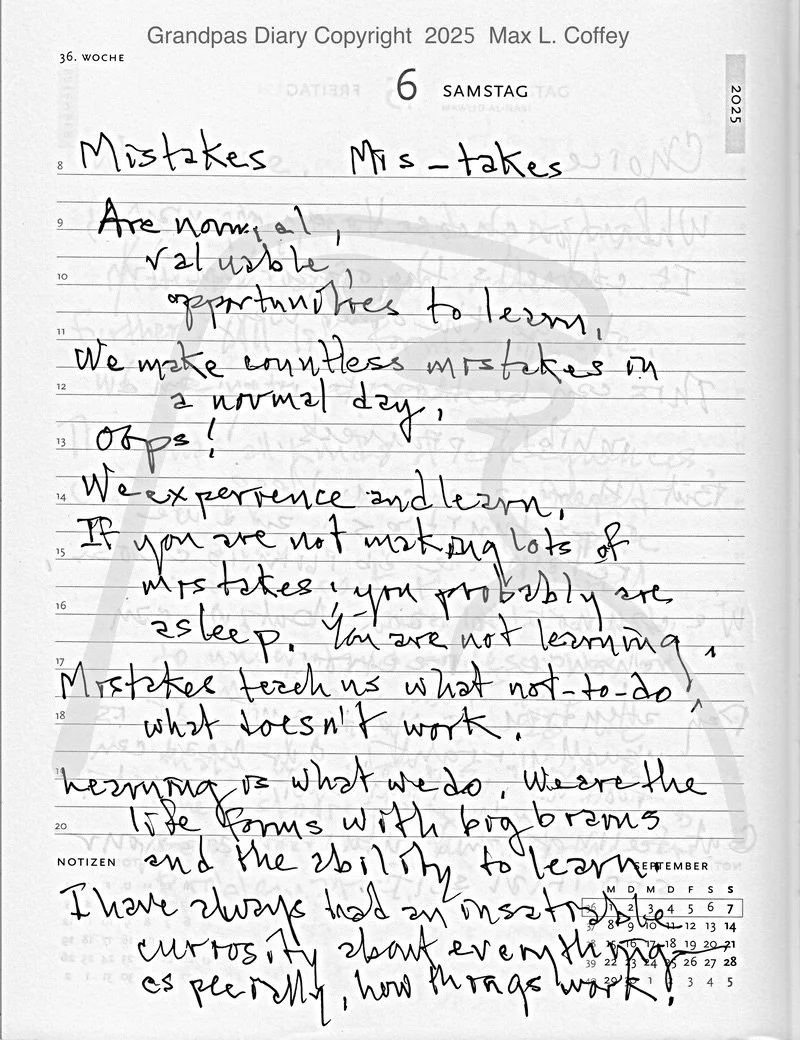 Grandpas Diary Copyright 2025 Max L. Coffey
36. WOCHE
6 SAMSTAG
2025
8 Mistakes Mis-takes
9 Are normal,
valuable,
10 opportunities to learn.
11 We make countless mistakes in
12 a normal day.
13 Oops!
14 We experience and learn.
If you are not making lots of
15 mistakes, you probably are
16 asleep. You are not learning.
17 Mistakes teach us what not-to-do,
18 what doesn't work.
19 Learning is what we do. We are the
20 life forms with big brains
NOTIZEN and the ability to learn.
SEPTEMBER
M D M D F S S
I have always had an insatiable
36 1 2 3 4 5 6 7
37 8 9 10 11 12 13 14
curiosity about everything—
38 15 16 17 18 19 20 21
39 22 23 24 25 26 27 28
especially, how things work!
29 30 1 2 3 4 5